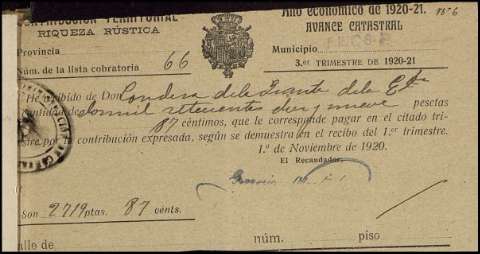 CONTRIBUCIÓN TERRITORIAL
RIQUEZA RÚSTICA
Provincia
Núm. de la lista cobratoria 66
Año económico de 1920-21.
AVANCE CATASTRAL
Municipio
3.er TRIMESTRE DE 1920-21
He recibido de Don Condesa de la Puente de la
cantidad de dos mil setecientas diez y nueve pesetas
87 céntimos, que le corresponde pagar en el citado tri-
estre por la contribución expresada, según se demuestra en el recibo del 1.er trimestre.
1.º de Noviembre de 1920.
El Recaudador,
Son 2719 ptas. 87 cénts.
alle de núm. piso